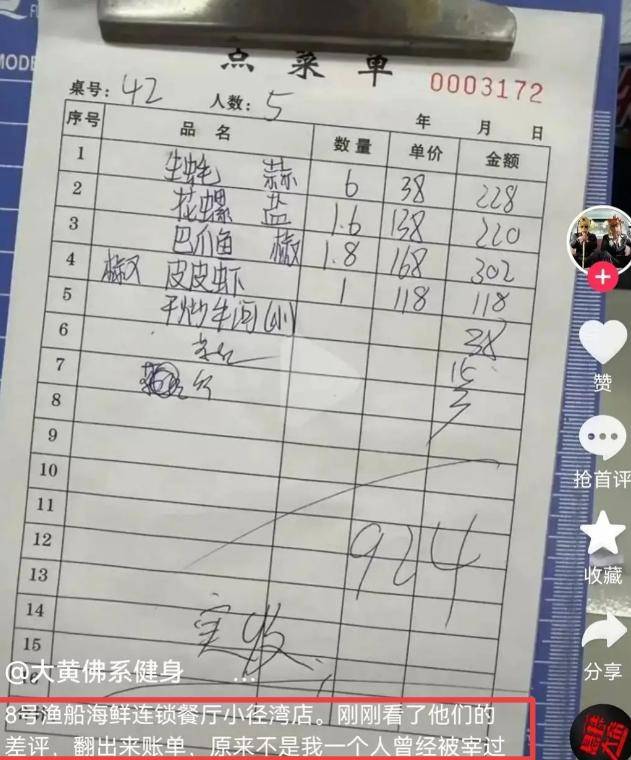 MODE
点菜单
0003172
桌号：42 人数：5 年 月 日
序号 品名 数量 单价 金额
1 生蚝 蒜 6 38 228
2 花螺 盐 1.6 138 220
3 巴爪鱼 椒 1.8 168 302
4 椒又 皮皮虾 1 118 118
5 干炒牛河(小) 38
6 15
7 3
8
9
10
11
12 924
13
14
15 实收
赞
抢首评
收藏
分享
@大黄佛系健身 ...
8号渔船海鲜连锁餐厅小径湾店。刚刚看了他们的
差评，翻出来账单，原来不是我一个人曾经被宰过